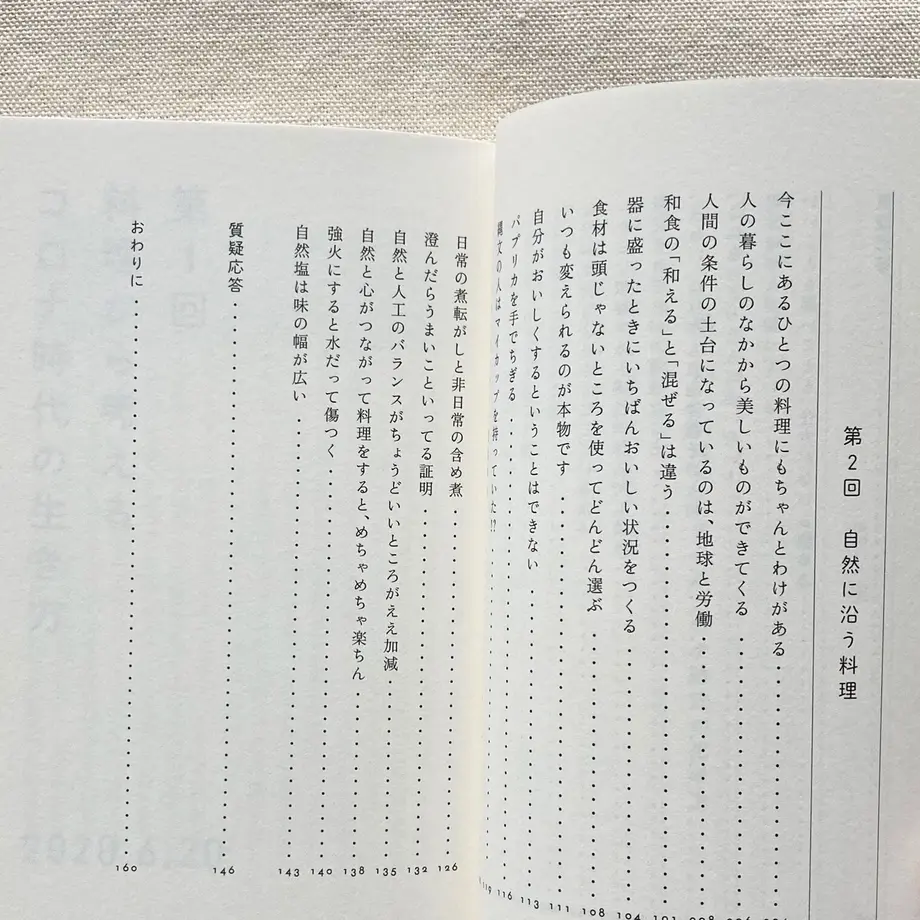 第2回 自然に沿う料理
今ここにあるひとつの料理にもちゃんとわけがある
人の暮らしのなかから美しいものができてくる
人間の条件の土台になっているのは、地球と労働
和食の「和える」と「混ぜる」は違う 101
器に盛ったときにいちばんおいしい状況をつくる 104
食材は頭じゃないところを使ってどんどん選ぶ 108
いつも変えられるのが本物です 111
自分がおいしくするということはできない 113
パプリカを手でちぎる 116
縄文の人はマイカップを持っていた!? 119
日常の煮転がしと非日常の含め煮 126
澄んだらうまいこといってる証明 132
自然と人工のバランスがちょうどいいところがええ加減 135
自然と心がつながって料理をすると、めちゃめちゃ楽ちん 138
強火にすると水だって傷つく 140
自然塩は味の幅が広い 143
質疑応答 146
おわりに 160